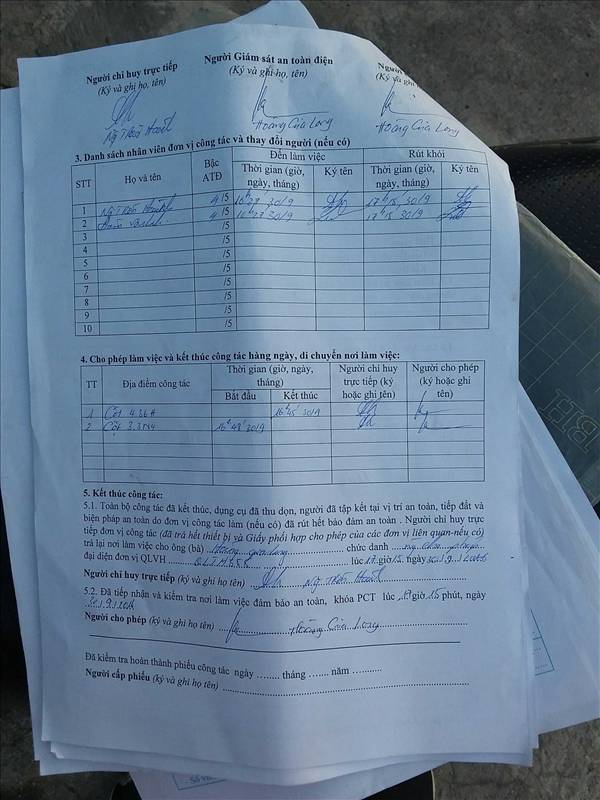 Người chỉ huy trực tiếp Người Giám sát an toàn điện Người
(Ký và ghi họ, tên) (Ký và ghi họ, tên) (Ký và ghi
Hoàng Cửu Long Hoàng Cửu Long
3. Danh sách nhân viên đơn vị công tác và thay đổi người (nếu có)
STT Họ và tên Bậc ATĐ Đến làm việc Rút khỏi
Thời gian (giờ, ngày, tháng) Ký tên Thời gian (giờ, ngày, tháng) Ký tên
1 4/5 16h27 30/9 17h15 30/9
2 4/5 16h27 30/9 17h15 30/9
3 /5
4 /5
5 /5
6 /5
7 /5
8 /5
9 /5
10 /5
4. Cho phép làm việc và kết thúc công tác hàng ngày, di chuyển nơi làm việc:
TT Địa điểm công tác Thời gian (giờ, ngày, tháng) Người chỉ huy trực tiếp (ký hoặc ghi tên) Người cho phép (ký hoặc ghi tên)
Bắt đầu Kết thúc
1 Cột 16h45' 30/9
2 Cột 16h48' 30/9
5. Kết thúc công tác:
5.1. Toàn bộ công tác đã kết thúc, dụng cụ đã thu dọn, người đã tập kết tại vị trí an toàn, tiếp đất và
biện pháp an toàn do đơn vị công tác làm (nếu có) đã rút hết bảo đảm an toàn . Người chỉ huy trực
tiếp đơn vị công tác (đã trả hết thiết bị và Giấy phối hợp cho phép của các đơn vị liên quan-nếu có)
trả lại nơi làm việc cho ông (bà) Hoàng Cửu Long chức danh
đại diện đơn vị QLVH lúc 17 giờ 15 ngày 30/9/
Người chỉ huy trực tiếp (ký và ghi họ tên)
5.2. Đã tiếp nhận và kiểm tra nơi làm việc đảm bảo an toàn, khóa PCT lúc 17 giờ 15 phút, ngày
Người cho phép (ký và ghi họ tên) Hoàng Cửu Long
Đã kiểm tra hoàn thành phiếu công tác ngày ....... tháng ....... năm ..........
Người cấp phiếu (ký và ghi họ tên)
BH